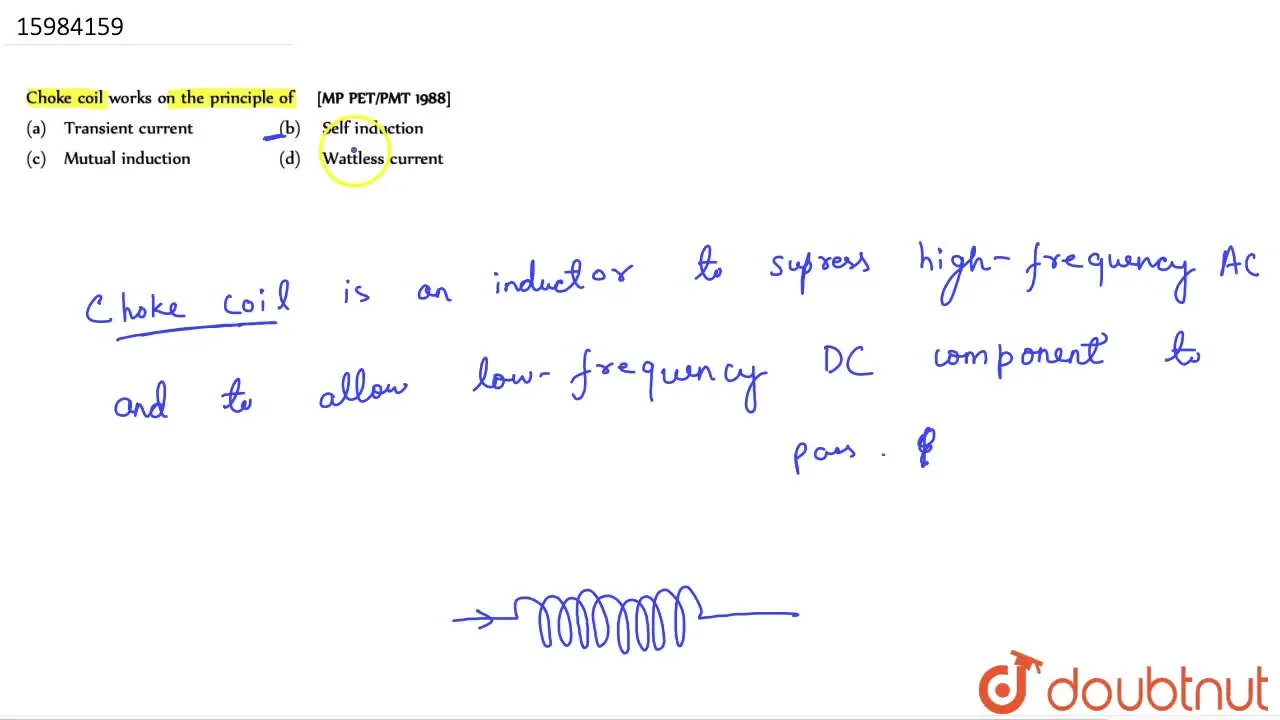 15984159
Choke coil works on the principle of [MP PET/PMT 1988]
(a) Transient current (b) Self induction
(c) Mutual induction (d) Wattless current
Choke coil is an inductor to supress high-frequency AC
and to allow low-frequency DC component to
pass.
doubtnut